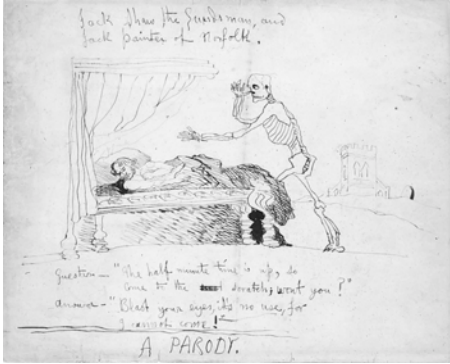 Jack Shaw the Guardsman, and
Jack painter of Norfolk.
Question — "The half minute time is up, so
Come to the scratch; wont you?"
Answer — "Blast your eyes, it's no use, for
I cannot come!"
A PARODY.